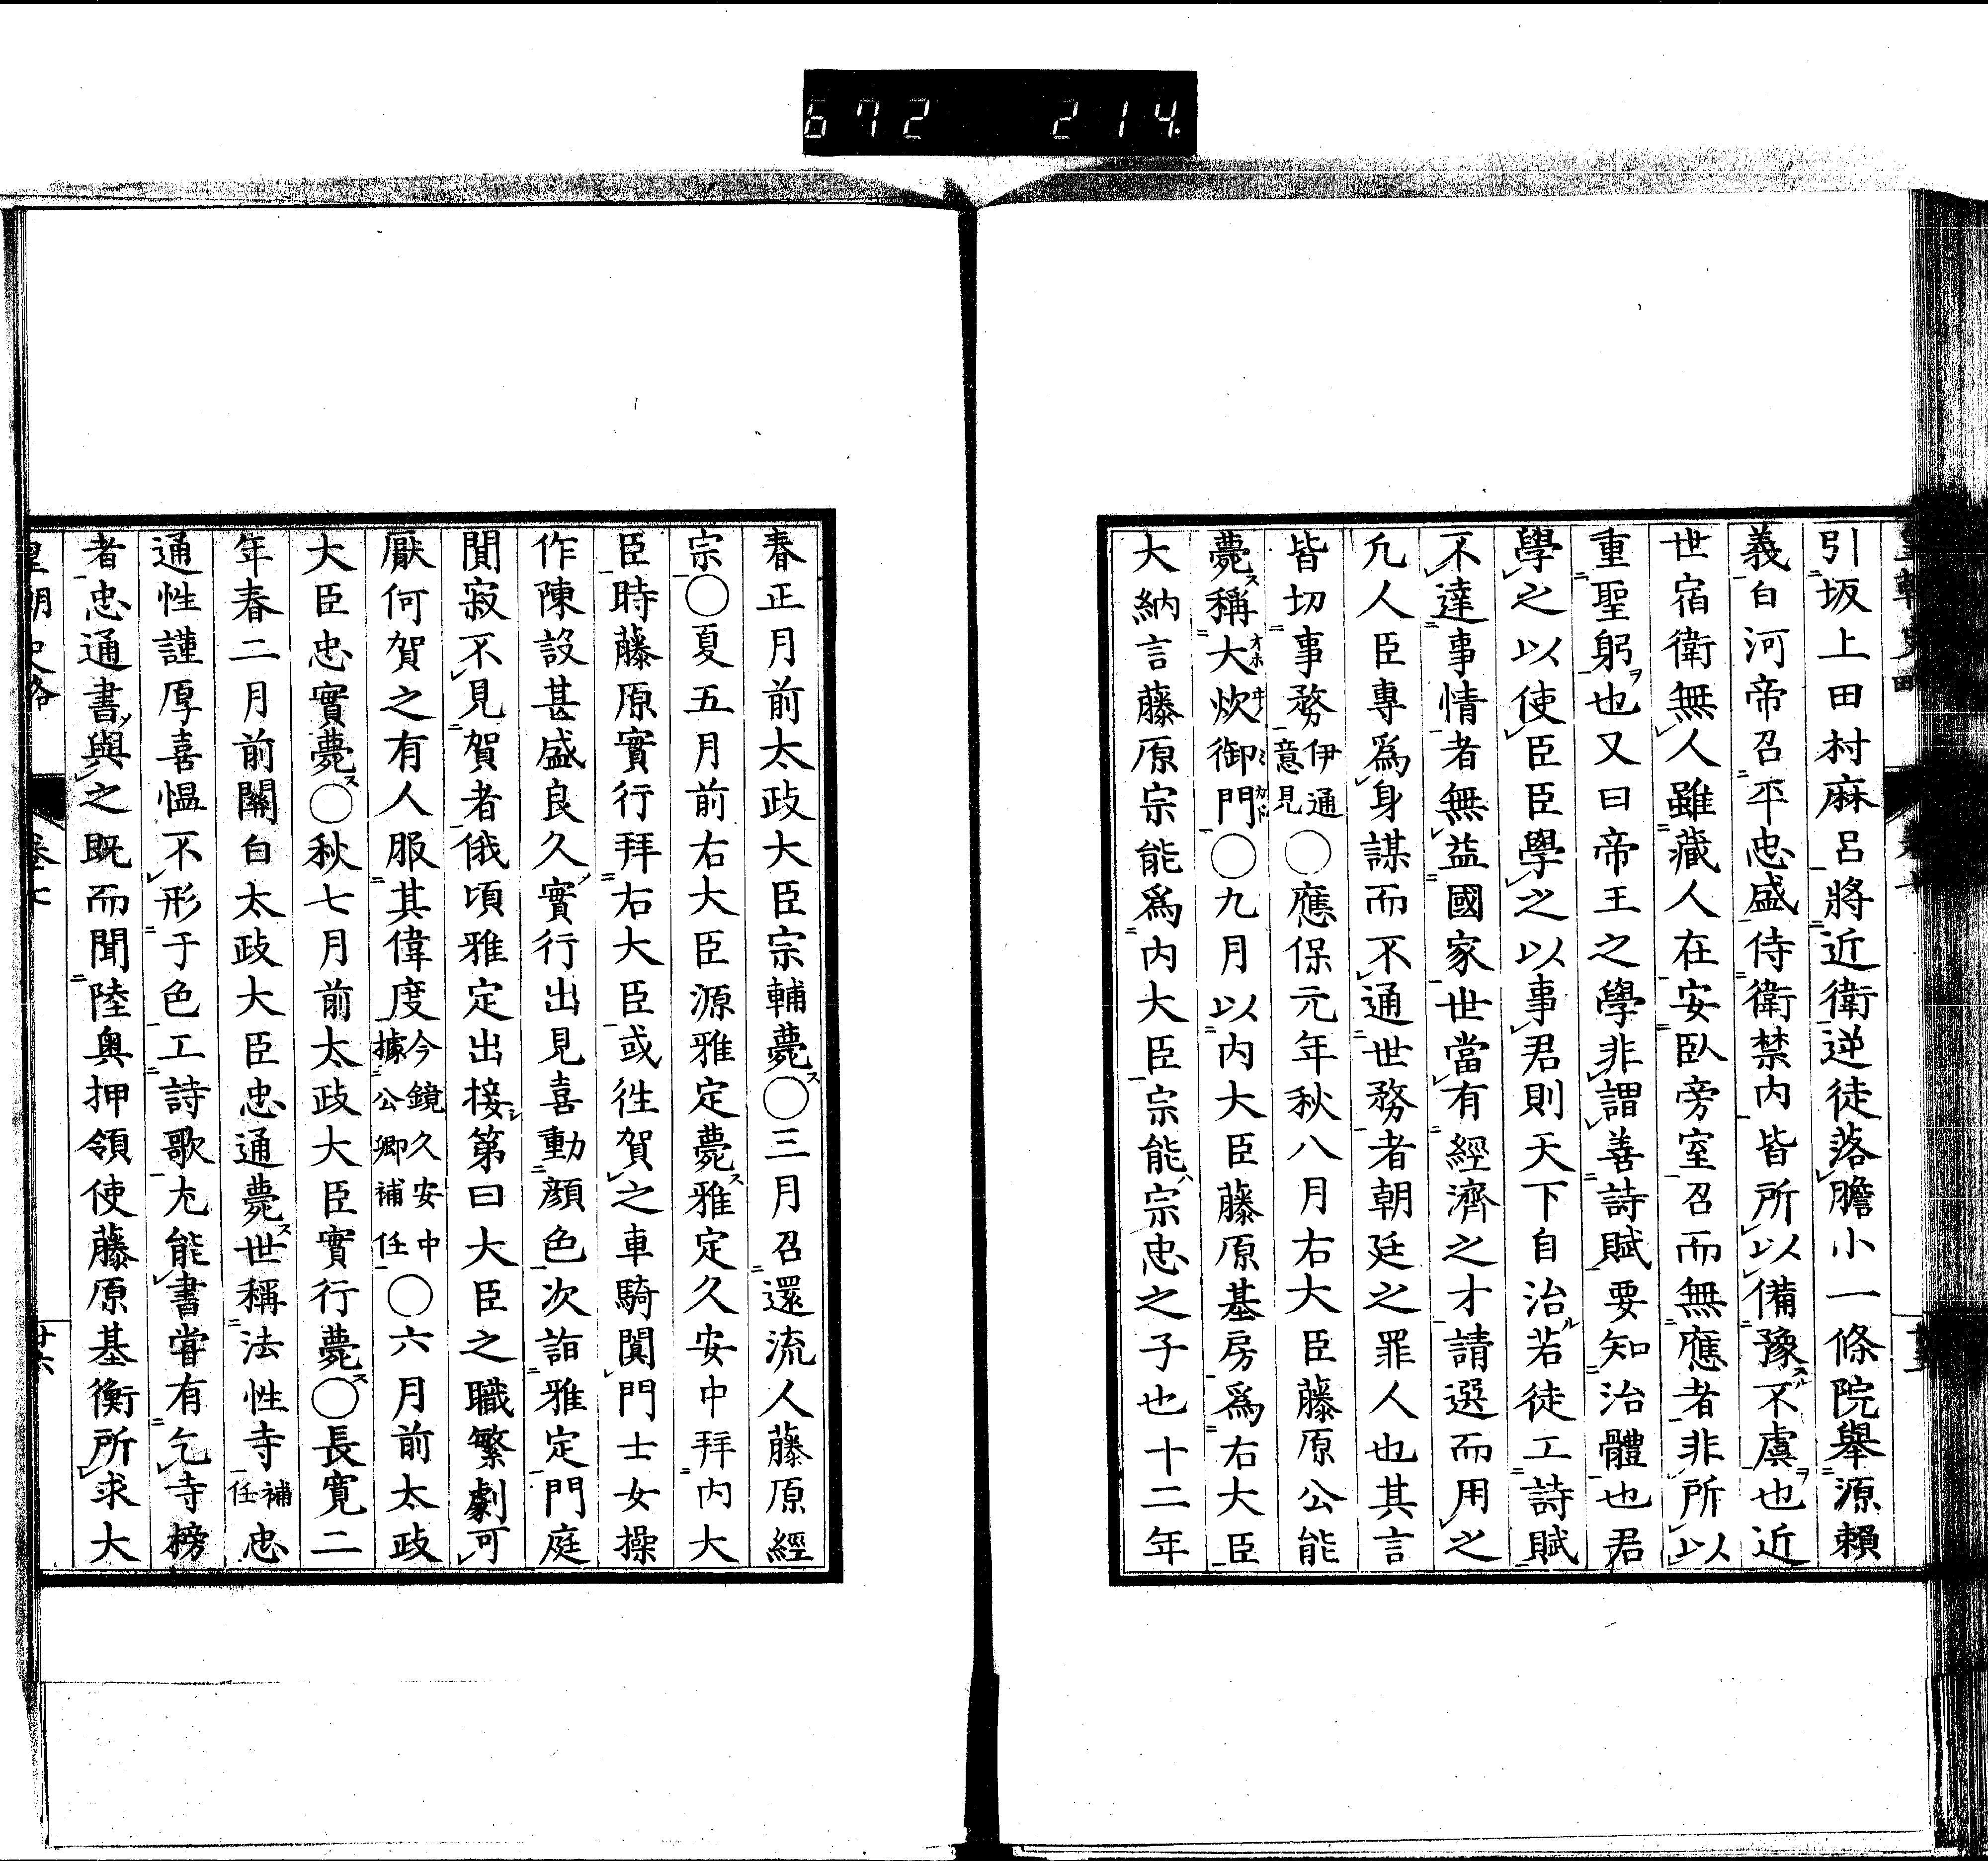 672 214
引坂上田村麻呂將近衛逆徒落膽小一條院舉源賴
義白河帝召平忠盛侍衛禁內皆所以備豫不虞也近
世宿衛無人雖藏人在安臥旁室召而無應者非所以
重聖躬也又曰帝王之學非謂善詩賦要知治體也君
學之以使臣臣學之以事君則天下自治若徒工詩賦
不達事情者無益國家世當有經濟之才請選而用之
凢人臣專爲身謀而不通世務者朝廷之罪人也其言
皆切事務伊通意見○應保元年秋八月右大臣藤原公能
薨稱大炊御門○九月以內大臣藤原基房爲右大臣
大納言藤原宗能爲內大臣宗能宗忠之子也十二年
春正月前太政大臣宗輔薨○三月召還流人藤原經
宗○夏五月前右大臣源雅定薨雅定久安中拜內大
臣時藤原實行拜右大臣或徃賀之車騎闐門士女操
作陳設甚盛良久實行出見喜動顔色次詣雅定門庭
閴寂不見賀者俄頃雅定出接第曰大臣之職繁劇可
厭何賀之有人服其偉度今鏡久安中據公卿補任○六月前太政
大臣忠實薨○秋七月前太政大臣實行薨○長寬二
年春二月前關白太政大臣忠通薨世稱法性寺補任忠
通性謹厚喜愠不形于色工詩歌尢能書甞有乞寺榜
者忠通書與之既而聞陸奥押領使藤原基衡所求大
皇朝史略 卷七 廿六